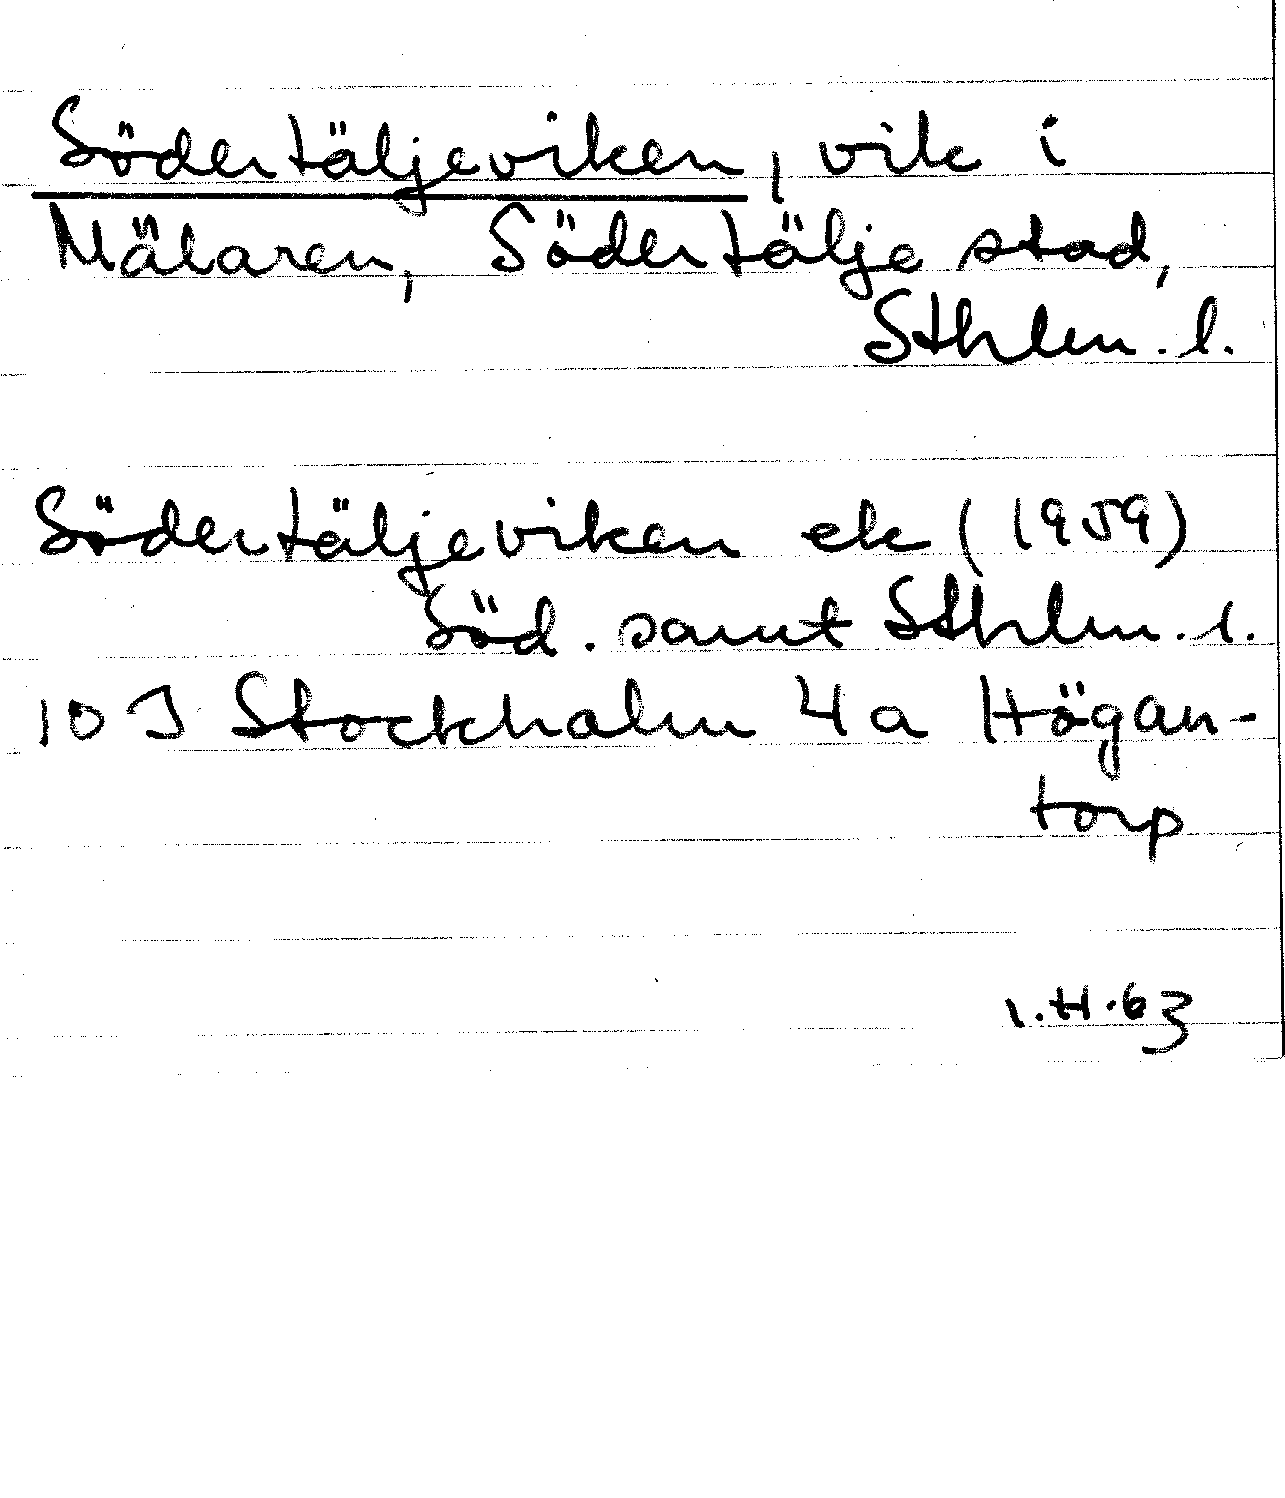 Södertäljeviken, vik i
Mälaren, Södertälje stad,
Sthlm. l.
Södertäljeviken ek (1959)
Söd. samt Sthlm. l.
10 I Stockholm 4a Högan-
torp
I.H.63